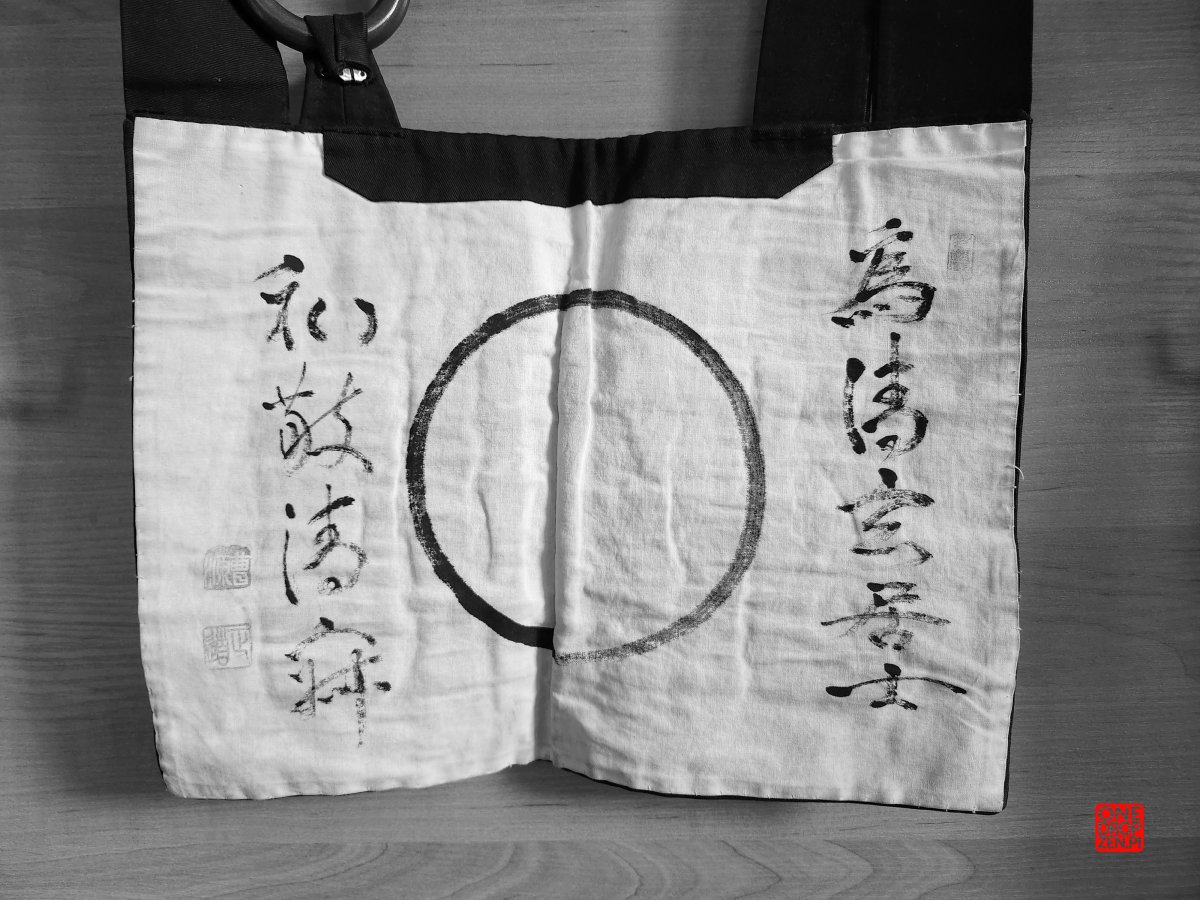 為清玄居士
和敬清寂
ONE
DROP
ZEN.PL